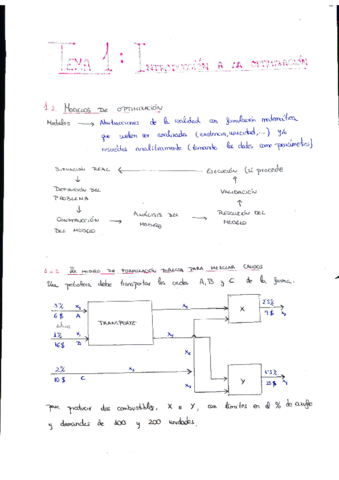 TEMA 1: INTRODUCCIÓN A LA OPTIMIZACIÓN
1.2. MODELOS DE OPTIMIZACIÓN
Modelos → Abstracciones de la realidad con formulación matemática
que suelen ser analizadas (existencia, unicidad,...) y/o
resueltas analíticamente (tomando los datos como parámetros)
SITUACIÓN REAL ← EJECUCIÓN (si procede
DEFINICIÓN DEL VALIDACIÓN
PROBLEMA
CONSTRUCCIÓN → ANÁLISIS DEL → RESOLUCIÓN DEL
DEL MODELO MODELO MODELO
PARA MEZCLAR CRUDOS
Una petrolera debe transportar los crudos A, B y C de la forma:
3%
6$ A
TRANSPORTE
X
2.5%
9$
1%
16$ B
2%
10$ C
Y
1.5%
15$
para producir dos combustibles, X e Y, con límites en el % de azufre
y demandas de 100 y 200 unidades.